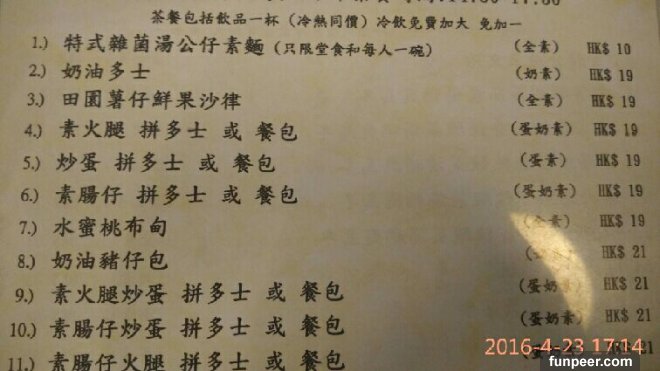 茶餐包括飲品一杯 (冷熱同價) 冷飲免費加大 免加一
1.) 特式雜菌湯公仔素麵 (只限堂食和每人一碗) (全素) HK$ 10
2.) 奶油多士 (奶素) HK$ 19
3.) 田園薯仔鮮果沙律 (全素) HK$ 19
4.) 素火腿 拼多士 或 餐包 (蛋奶素) HK$ 19
5.) 炒蛋 拼多士 或 餐包 (蛋素) HK$ 19
6.) 素腸仔 拼多士 或 餐包 (蛋奶素) HK$ 19
7.) 水蜜桃布甸 (全素) HK$ 19
8.) 奶油豬仔包 HK$ 21
9.) 素火腿炒蛋 拼多士 或 餐包 (蛋奶素) HK$ 21
10.) 素腸仔炒蛋 拼多士 或 餐包 (蛋奶素) HK$ 21
11.) 素腸仔火腿 拼多士 或 餐包 21
2016-4-23 17:14
funpeer.com